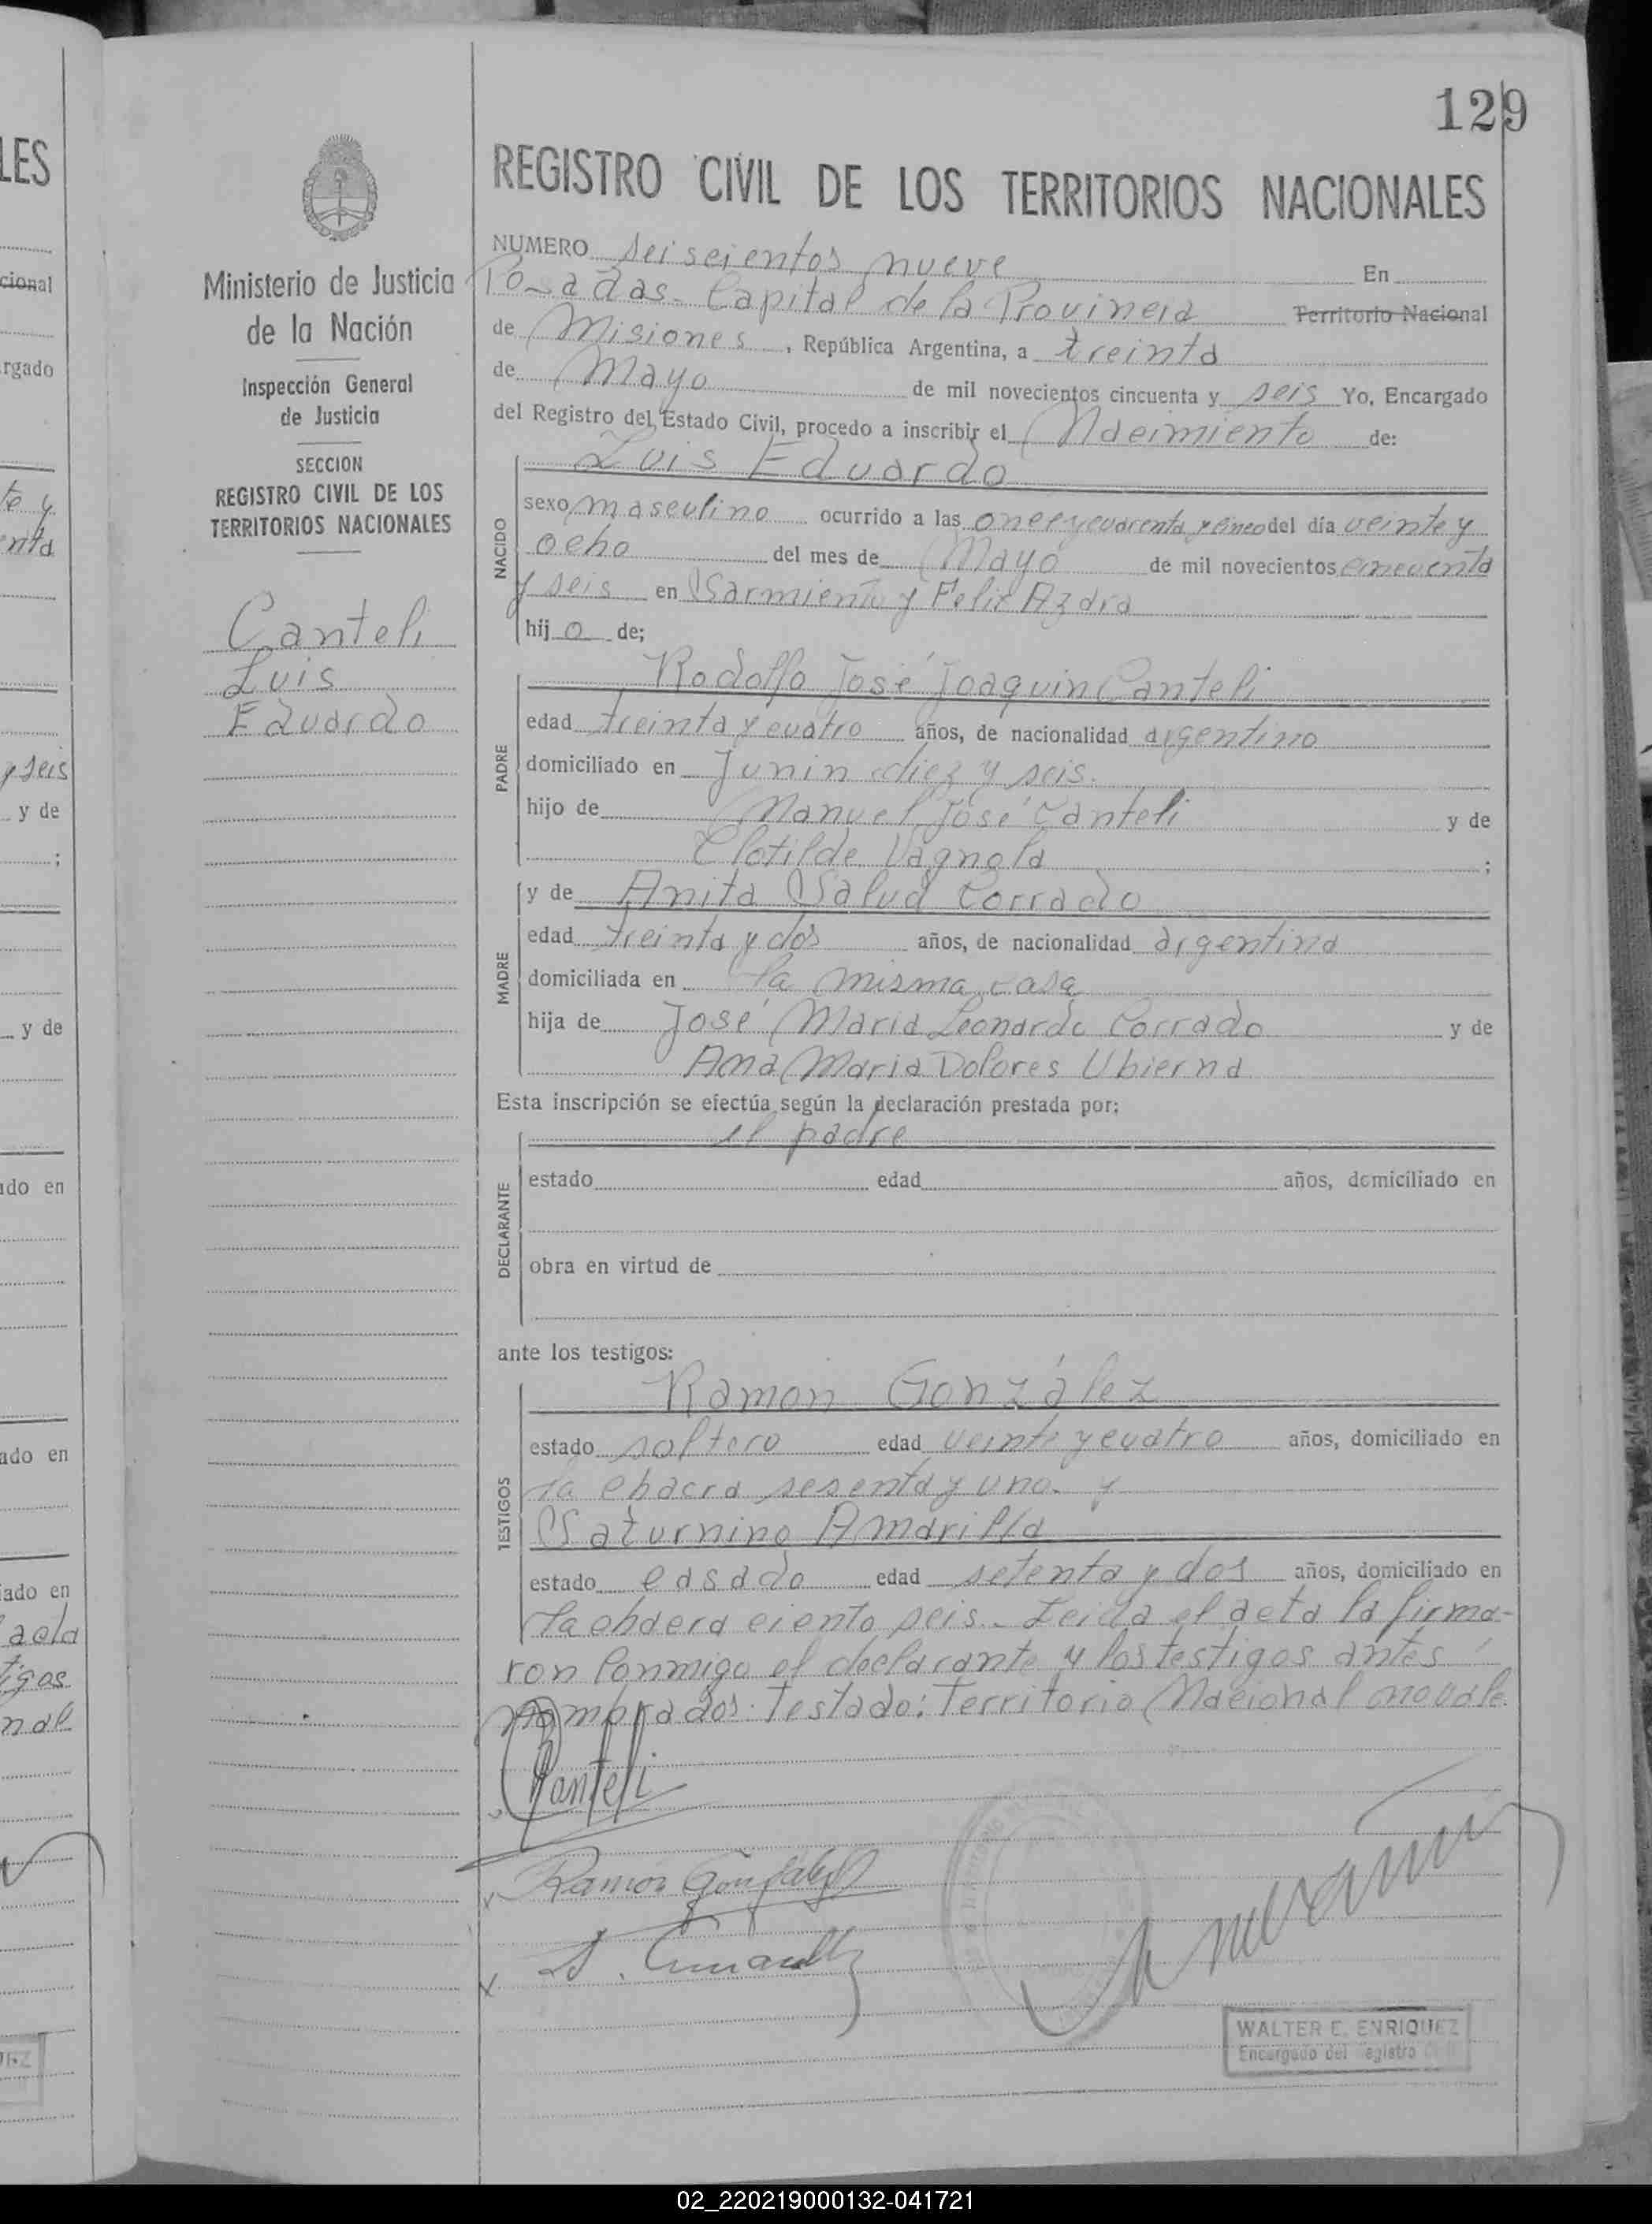 129
REGISTRO CIVIL DE LOS TERRITORIOS NACIONALES
Ministerio de Justicia
de la Nación
Inspección General
de Justicia
SECCION
REGISTRO CIVIL DE LOS
TERRITORIOS NACIONALES
Canteli
Luis
Eduardo
NUMERO seiscientos nueve En
Posadas. Capital de la Provincia Territorio Nacional
de Misiones, República Argentina, a treinta
de Mayo de mil novecientos cincuenta y seis Yo, Encargado
del Registro del Estado Civil, procedo a inscribir el Nacimiento de:
NACIDO
Luis Eduardo
sexo masculino ocurrido a las once y cuarenta y cinco del día veinte y
ocho del mes de Mayo de mil novecientos cincuenta
y seis en Sarmiento y Felix Azara
hijo de;
PADRE
Rodolfo José Joaquin Canteli
edad treinta y cuatro años, de nacionalidad argentino
domiciliado en Junin diez y seis.
hijo de Manuel José Canteli y de
Clotilde Vagnola ;
MADRE
y de Anita Salud Corrado
edad treinta y dos años, de nacionalidad argentina
domiciliada en la misma casa
hija de José Maria Leonardo Corrado y de
Ana Maria Dolores Ubierna
Esta inscripción se efectúa según la declaración prestada por:
DECLARANTE
el padre
estado edad años, domiciliado en
obra en virtud de
ante los testigos:
TESTIGOS
Ramon González
estado soltero edad veinte y cuatro años, domiciliado en
la chacra sesenta y uno. y
Saturnino Amarilla
estado casado edad setenta y dos años, domiciliado en
la chacra ciento seis.- Leida el acta la firma-
ron conmigo el declarante y los testigos antes
nombrados. Testado: Territorio Nacional no vale.
Canteli
Ramón González
S. Amarilla
WALTER E. ENRIQUEZ
Encargado del Registro
02_220219000132-041721